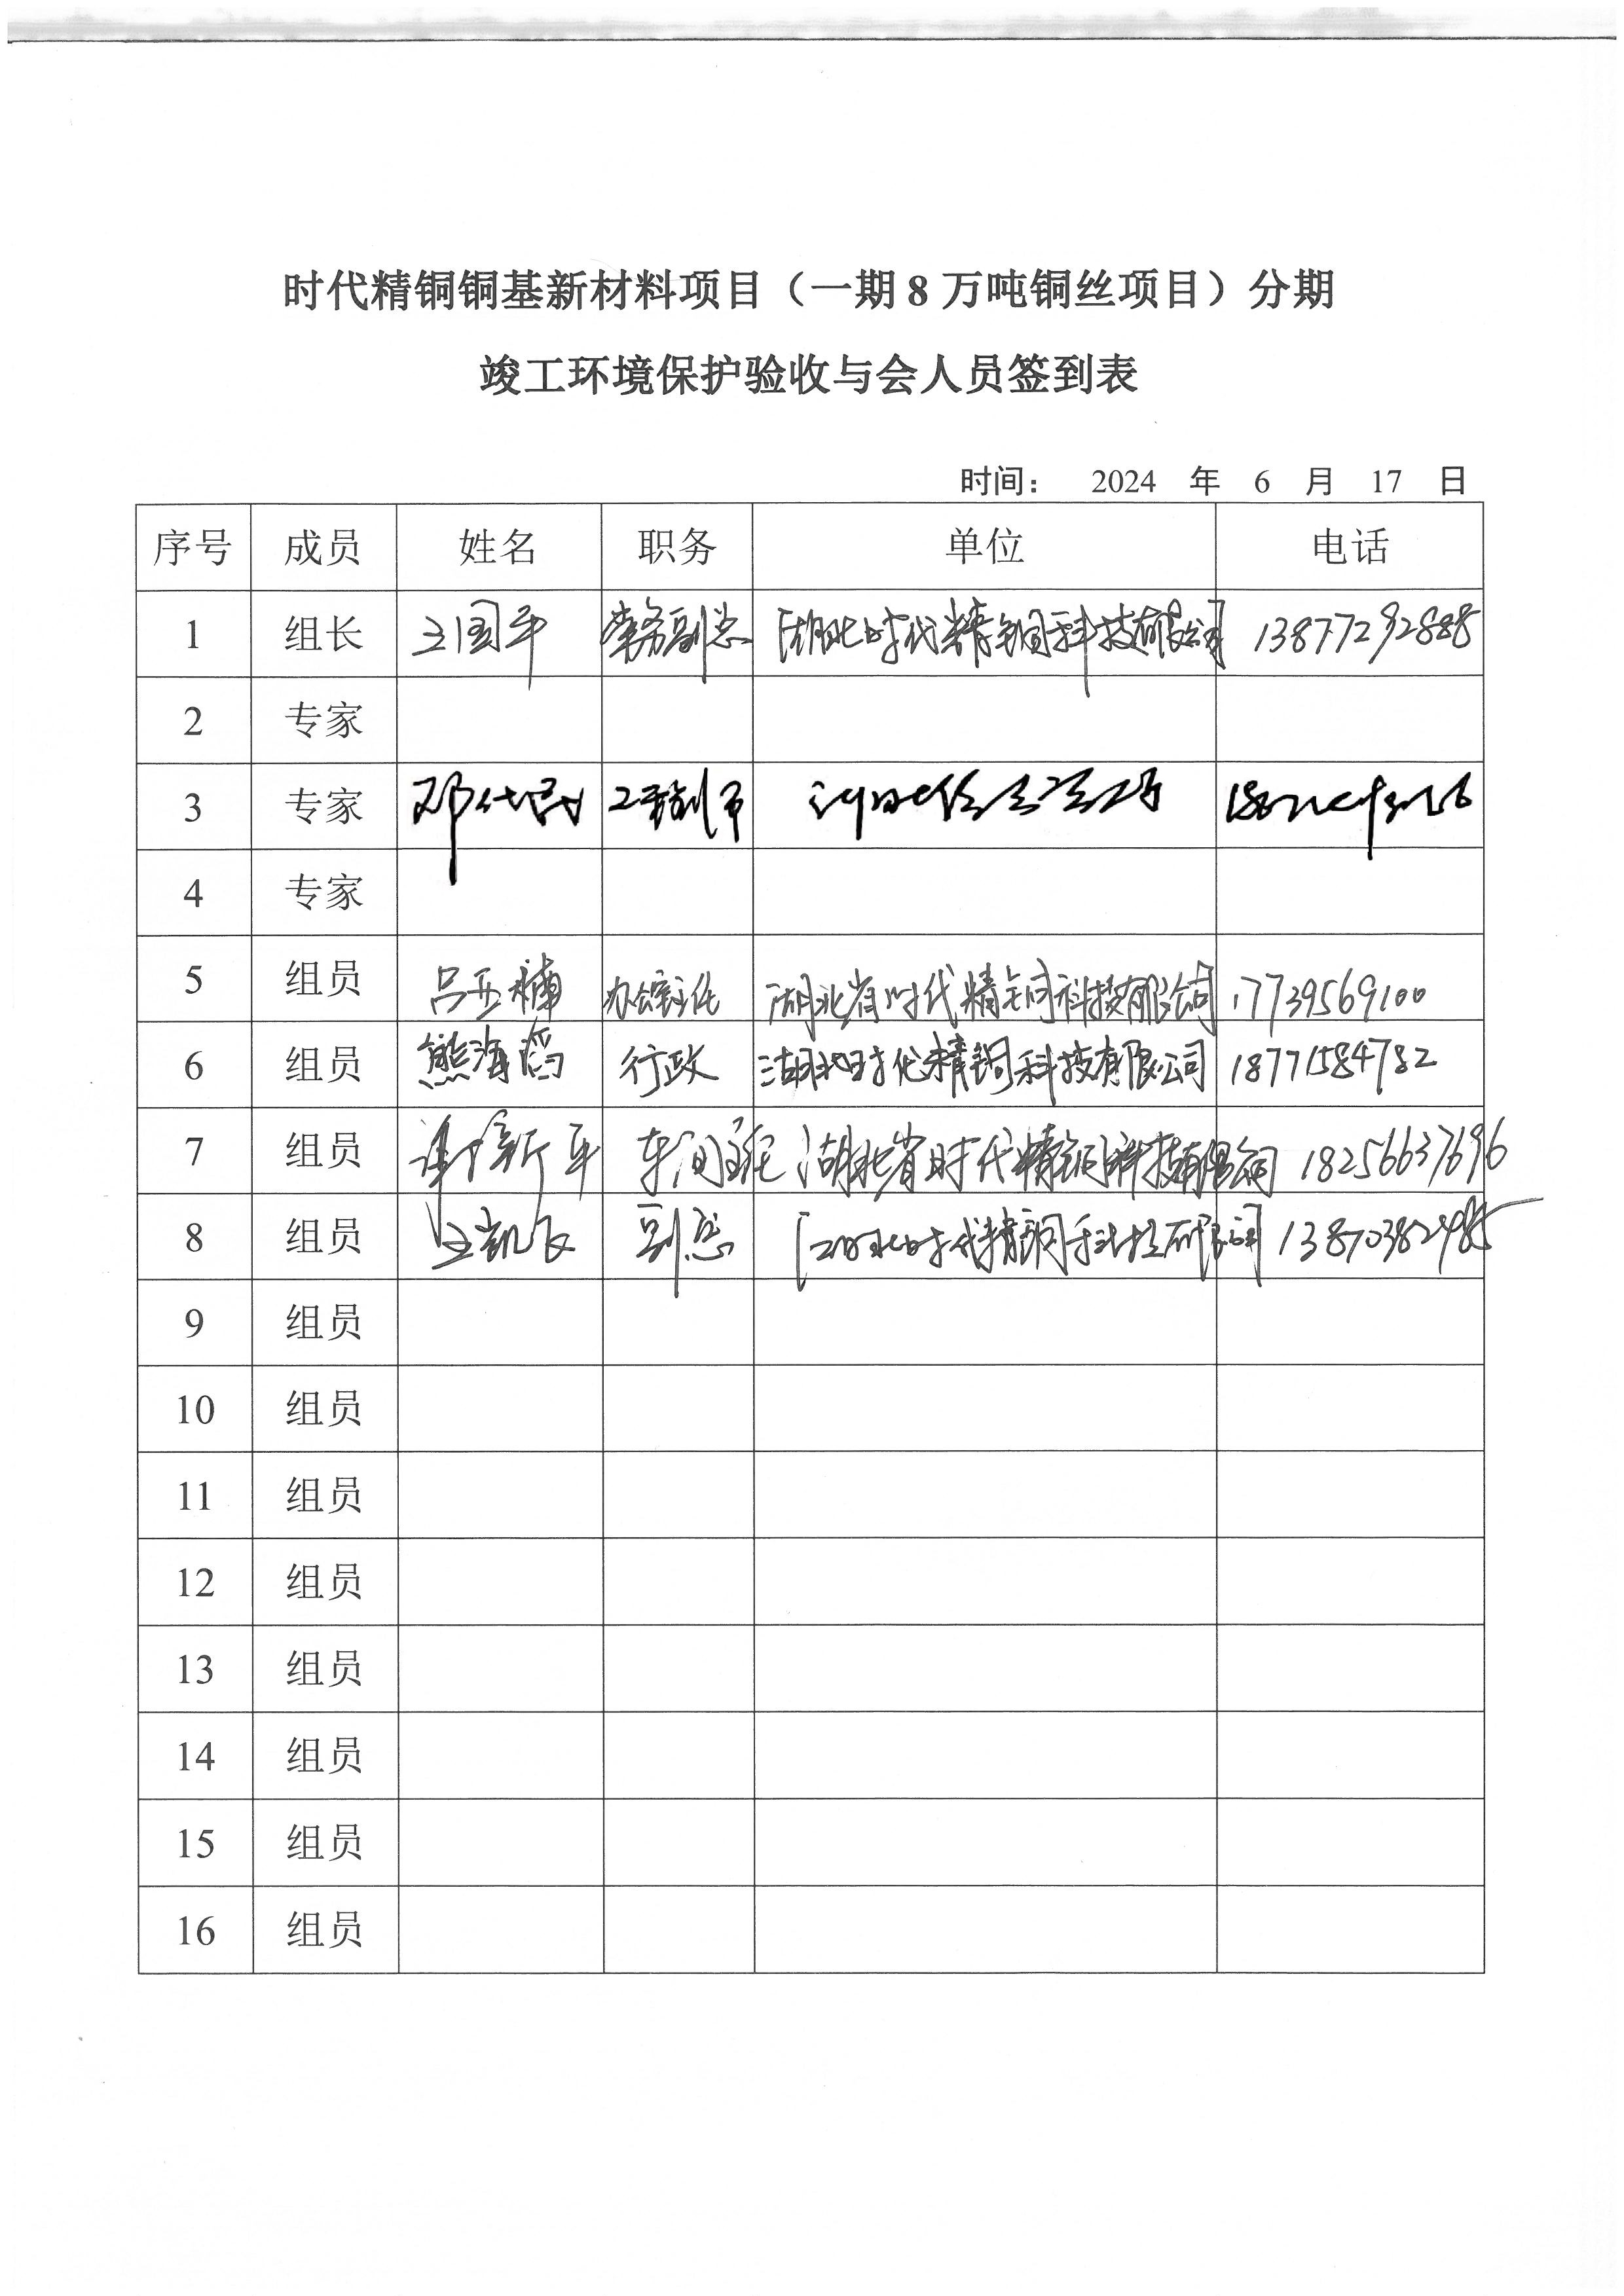 时代精铜铜基新材料项目（一期8万吨铜丝项目）分期
竣工环境保护验收与会人员签到表
时间： 2024 年 6 月 17 日
序号 成员 姓名 职务 单位 电话
1 组长 王国平 常务副总 湖北时代精铜科技有限公司 13877292888
2 专家
3 专家
4 专家
5 组员 吕亚楠 办公室主任 湖北省时代精铜科技有限公司 17739569100
6 组员 熊海滔 行政 湖北时代精铜科技有限公司 18771584782
7 组员 车间主任 湖北省时代精铜科技有限公司 18256637696
8 组员 王凯飞 副总 湖北时代精铜科技有限公司
9 组员
10 组员
11 组员
12 组员
13 组员
14 组员
15 组员
16 组员